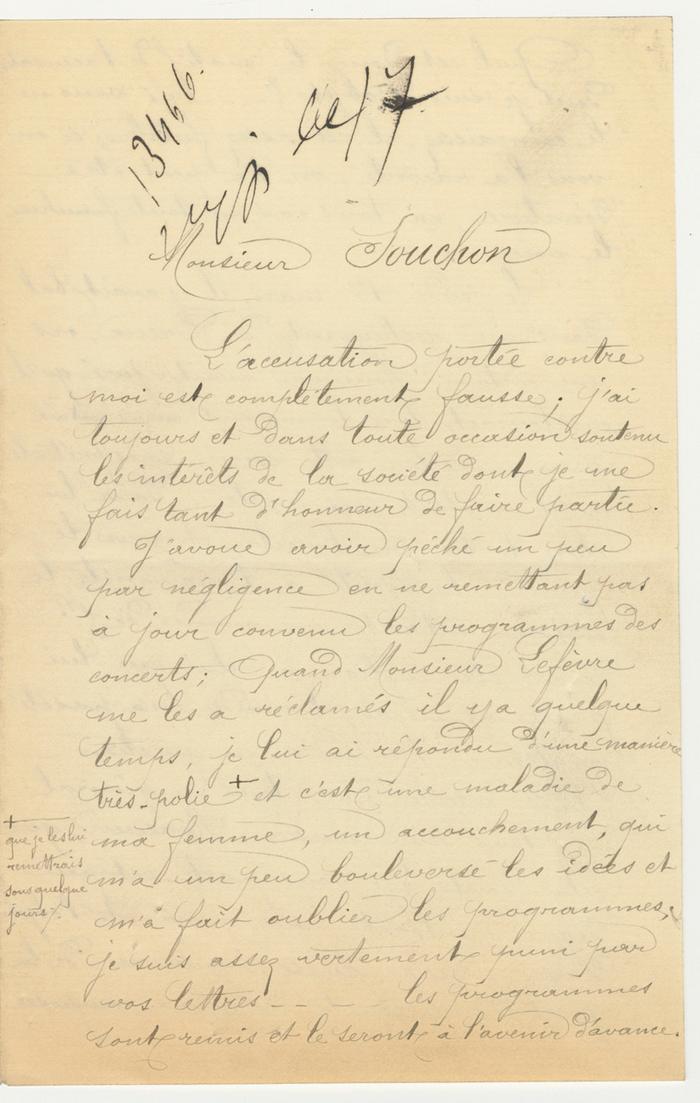 13466.
Monsieur Souchon
L'accusation portée contre
moi est complètement fausse; j'ai
toujours et dans toute occasion soutenu
les intérêts de la société dont je me
fais tant d'honneur de faire partie.
J'avoue avoir péché un peu
par négligence en ne remettant pas
à jour convenu les programmes des
concerts; Quand Monsieur Lefèvre
me les a réclamés il y a quelque
temps, je lui ai répondu d'une manière
très-polie + et c'est une maladie de
ma femme, un accouchement, qui
m'a un peu bouleversé les idées et
m'a fait oublier les programmes;
je suis assez vertement puni par
vos lettres - - - les programmes
sont remis et le seront à l'avenir d'avance.
+
que je les lui
remettrais
sous quelque
jours